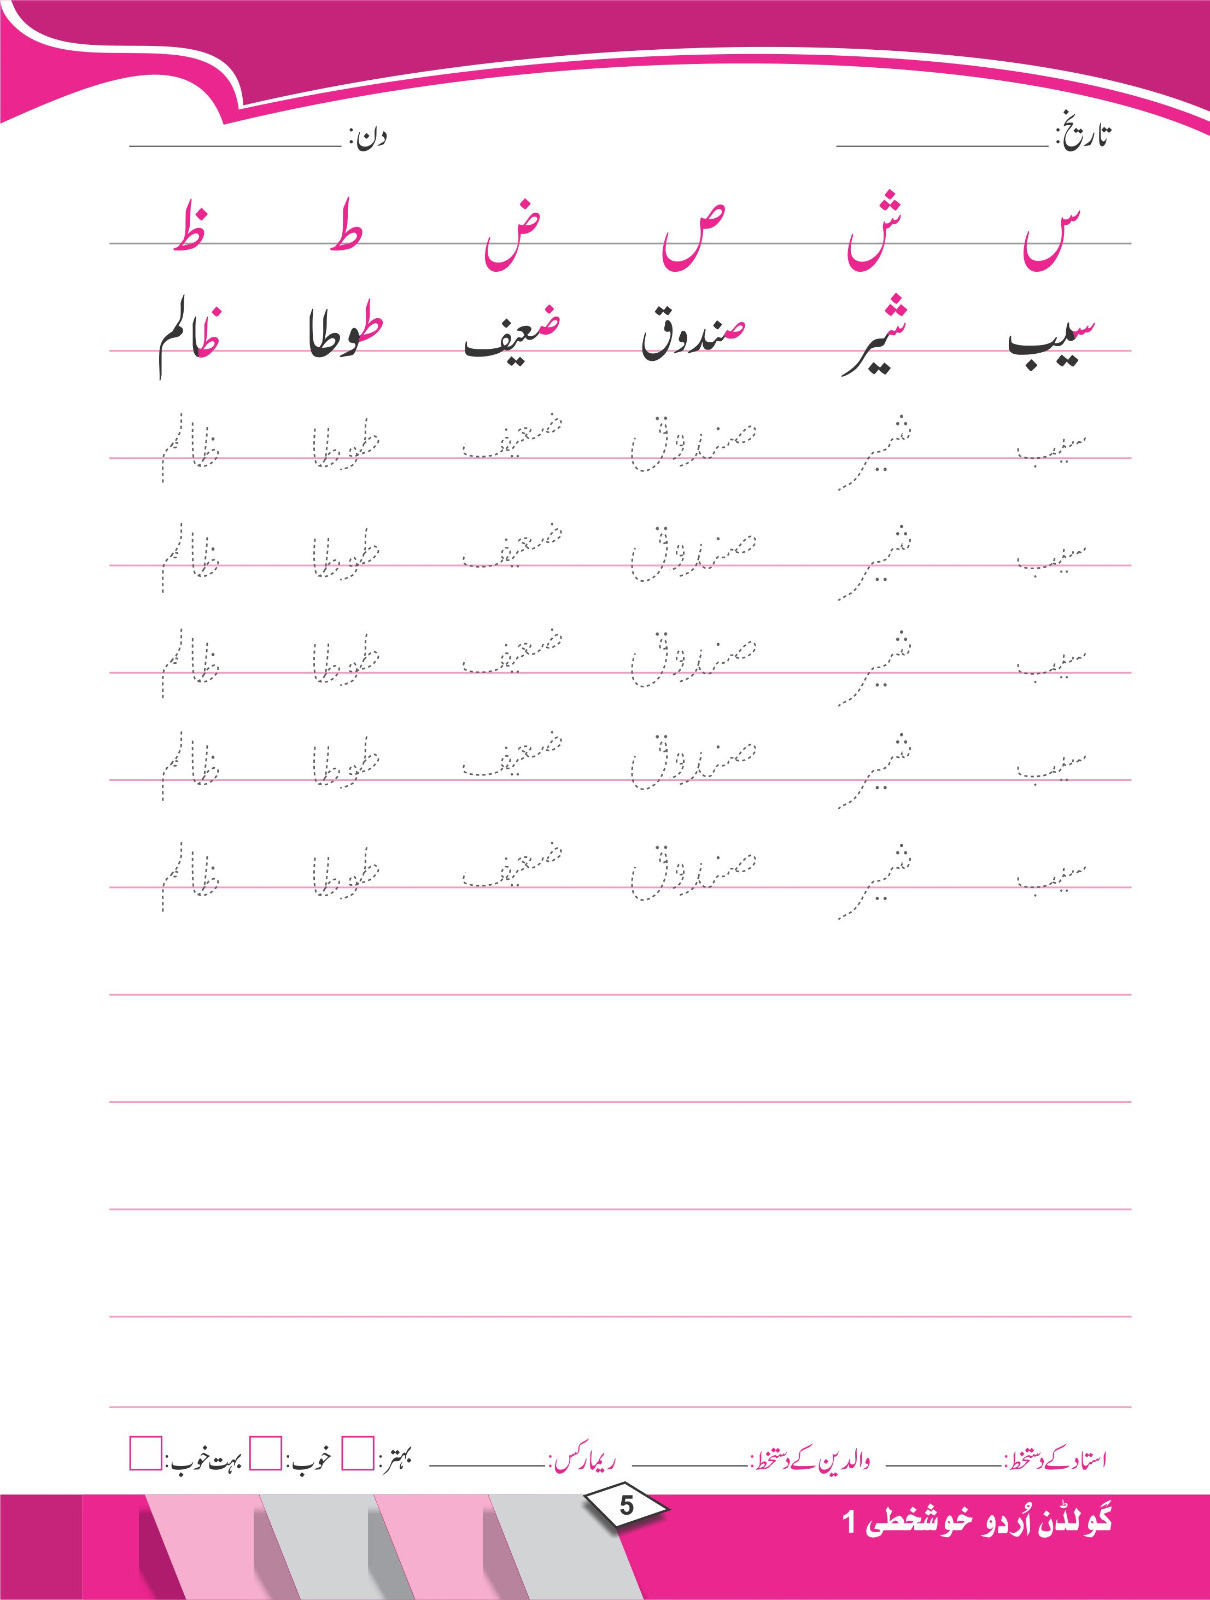 تاریخ: دن:
س ش ص ض ط ظ
سیب شیر صندوق ضعیف طوطا ظالم
سیب شیر صندوق ضعیف طوطا ظالم
سیب شیر صندوق ضعیف طوطا ظالم
سیب شیر صندوق ضعیف طوطا ظالم
سیب شیر صندوق ضعیف طوطا ظالم
سیب شیر صندوق ضعیف طوطا ظالم
استاد کے دستخط: والدین کے دستخط: ریمارکس: بہتر: خوب: بہت خوب:
گولڈن اُردو خوشخطی 1
5